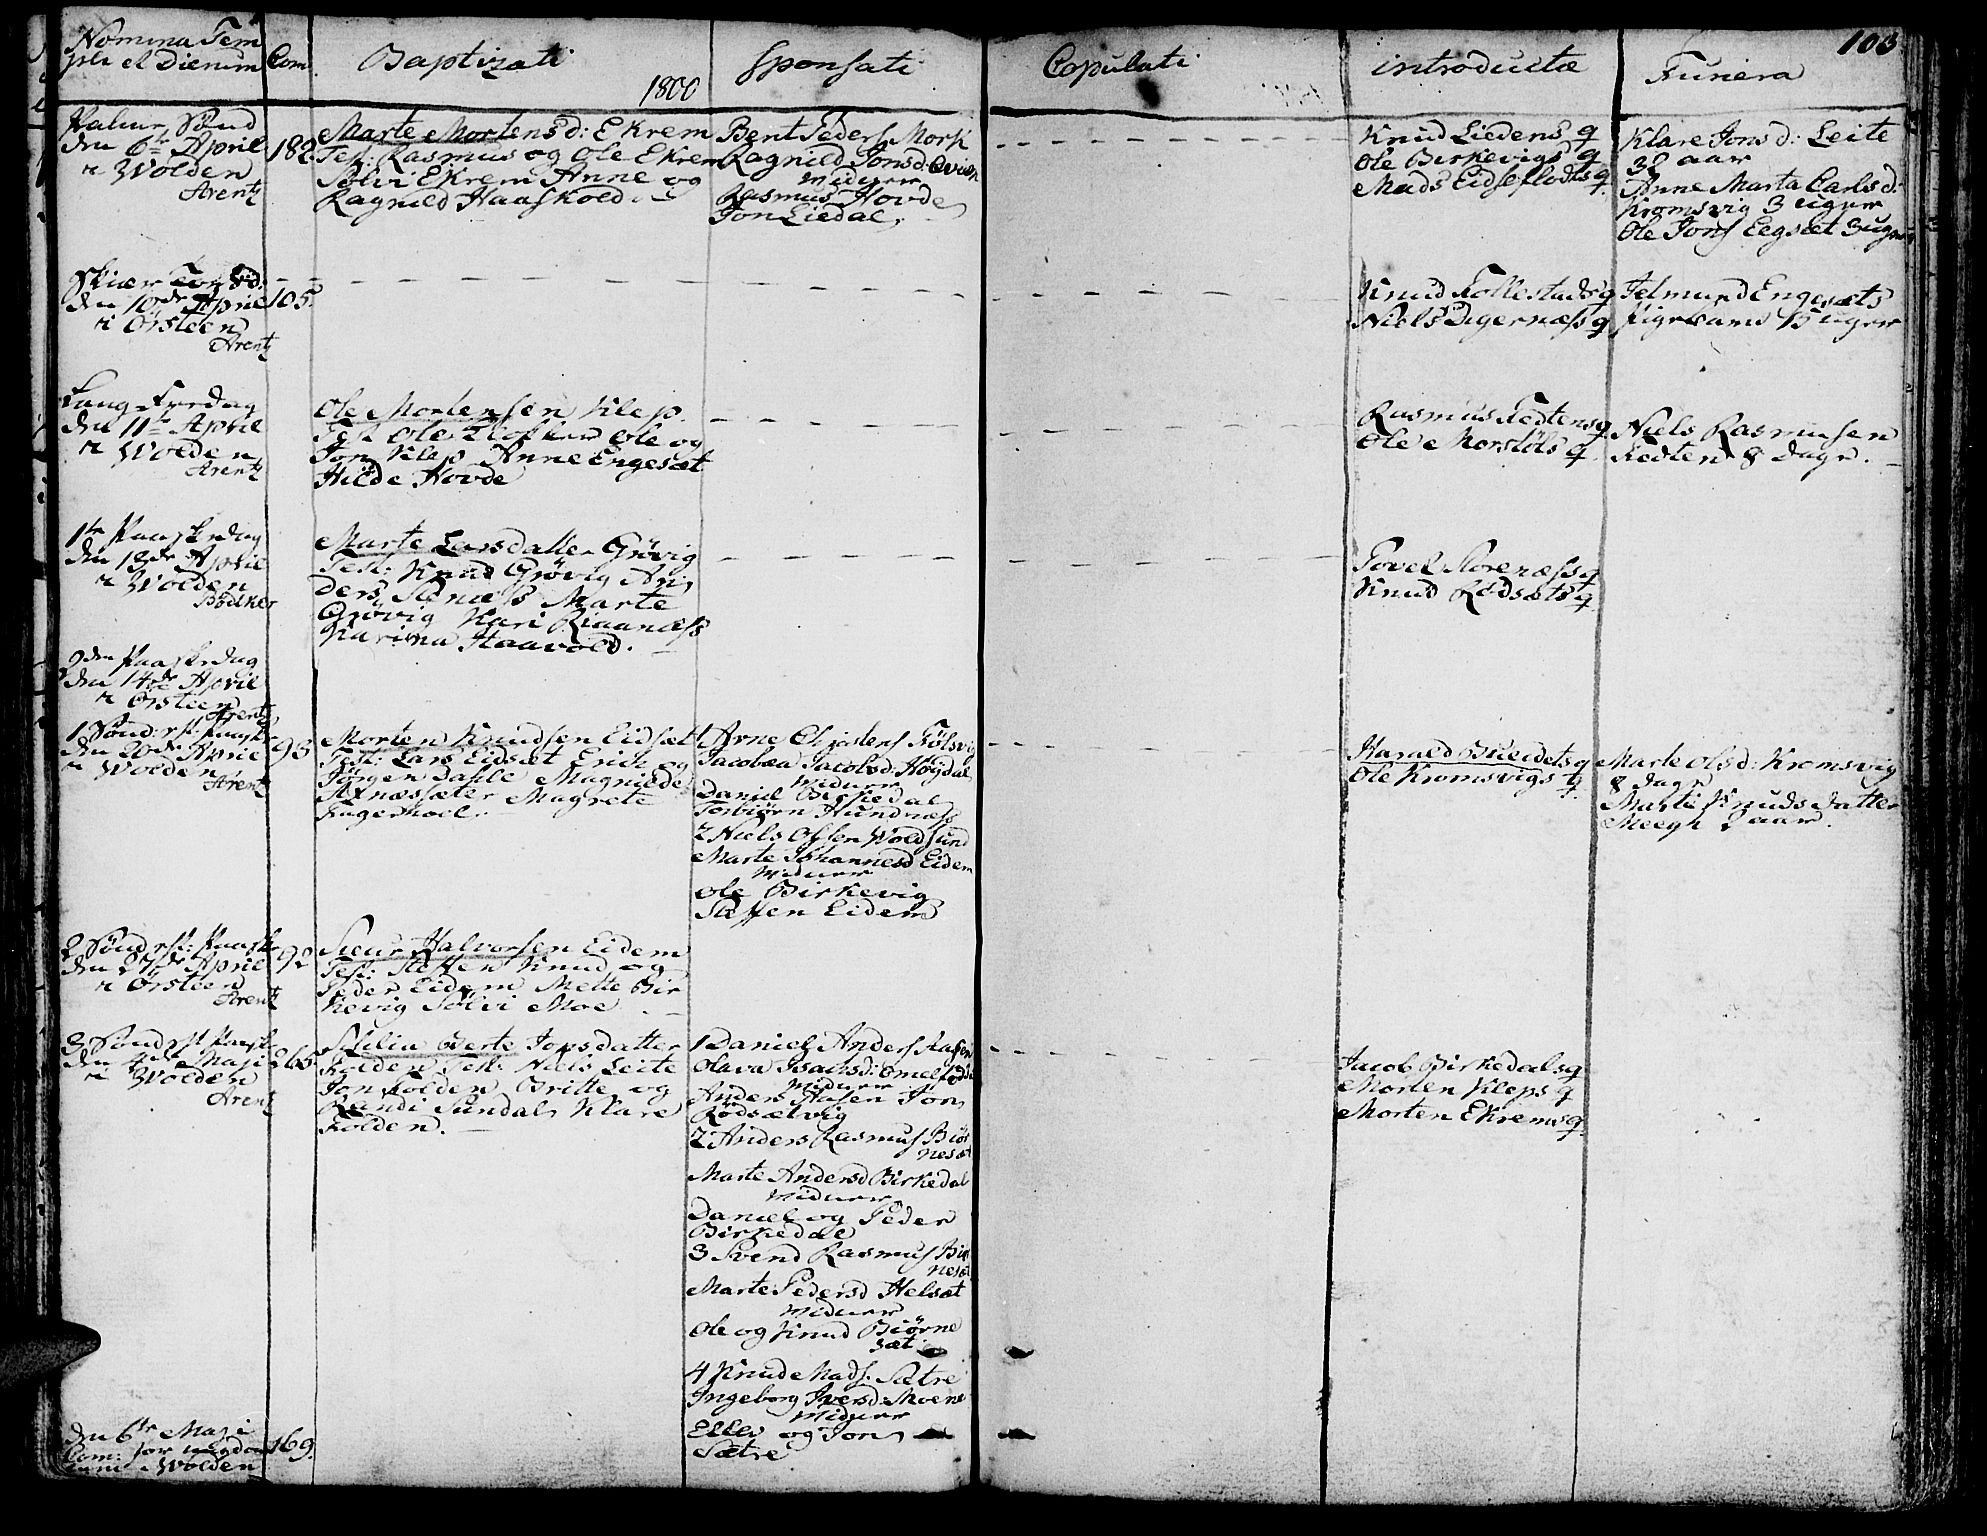 103
Nomina Tem
pli et Dierum
Com
Baptizati
1800
Sponsati
Copulati
introductæ
Funera
Palme Sønd
den 6te April
i Wolden
Arentz
182
Marte Mortensd: Ekrem
Test: Rasmus og Ole Ekrem
Sølvi Ekrem Anne og
Ragnild Haaskold.
Bent Peders Mork
Ragnild Jonsd:
Miduer
Rasmus Hovde
Jon Liedal.
Knud Lidens q
Ole Birkevigs q
Mads Eidseflodts q
Klare Jonsd: Leite
32 aar
Anne Marta Carlsd:
Kromsvig 3 uger
Ole Jons Eegsæt 3 uger
Skiær Torsd:
den 10de April
i Ørsteen
Arentz
105.
Knud Follestads q
Niels Digernæss q
Jetmund Engesæts
15 uger
Lang Fredag
den 11te April
i Wolden
Arentz
Ole Mortensen Klep
Test Ole Ole og
Jon Klep Anne Engesæt
Hilde Hovde
Rasmus Fedtens q
Ole Morstøls q
Niels Rasmusen
Fedten 8 Dage.
1te Paaskedag
den 13de April
i Wolden
Bødtker
Marte Larsdatter Grøvig
Test: Knud Grøvig An
ders Marte
Grøvig Kari Riaanæss
Karima Haavold.
Povel Florenæss q
Knud Rødsæts q
2den Paaskedag
den 14de April
i Ørsteen
Arentz
1 Sønd: rst: Paaske
den 20de April
i Wolden
Arentz
93
Morten Knudsen Eidsæt
Test: Lars Eidsæt Erich og
Jørgen Dahle Magnilde
Axnæssæter Magrete
Fagerhoel.
1 Arne Chrstens Følsvig
Jacobæa Jacobsd: Høydal
Miduer
Daniel Birkedal
Torbiørn Hundnæss
2 Niels Olsen Woldsund
Marte Johannesd Eidem
Miduer
Ole Birkevig
Steffen Eidem
Harald q
Ole Kromsvigs q
Marte Olsd: Kromsvig
8 dage
Marte Knuds datter
Meegh 2 aar.
2 Sønd rst: Paaske
den 27de April
i Ørsteen
Arentz
92
Siur Halvorsen Eidem
Test: Steffen Knud og
Peder Eidem Mette Bir
kevig Sølvi Moe
3 Sønd rst Paaske
den 4de Maji
i Wolden
Arentz
265
Sicilia Berte Jonsdatter
Folden Test: Niels Leite
Jon Folden Britte og
Randi Sundal Klare
Folden.
1 Daniel Anders Aasen
Olava Isachsd:
Miduer
Anders Aasen Jon
Rødsætvig
2 Anders Rasmus Biør
nesæt
Marte Andersd Birkedal
Miduer
Daniel og Peder
Birkedal
3 Svend Rasmus Biør
nesæt
Marte Pedersd Helsæt
Miduer
Ole og Knud Biørne
sæt
4 Knud Mads. Sætre
Ingeborg Iversd: Moene
Miduer
Elles og Jon
Sætre
Jacob Birkedals q
Morten Kleps q
Morten Ekrems q
den 6te Maji
Com: for ungdom
Wolden
169.